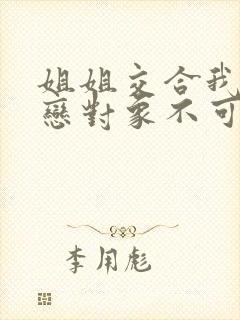 姐姐交合我
戀對象不可
李用彪